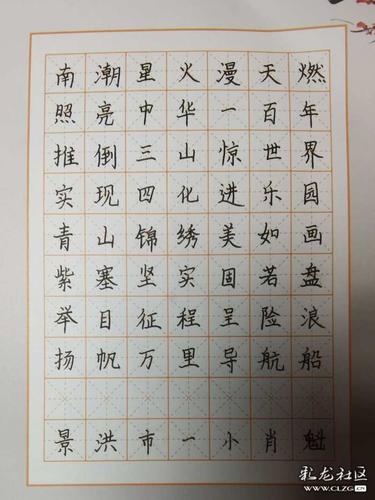 南潮星火漫天燃
照亮中华一百年
推倒三山惊世界
实现四化进乐园
青山锦绣美如画
紫塞坚实国若盘
举目征程呈险浪
扬帆万里导航船
景洪市一小肖魁
彩龙社区
WWW.CLZG.CN